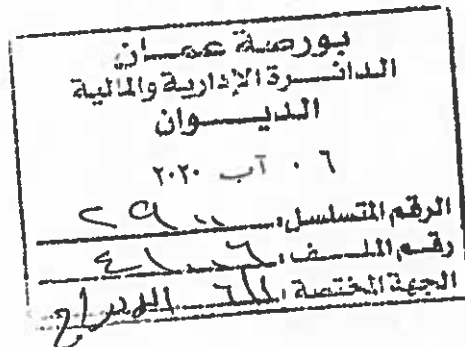 بورصة عمان
الدائرة الإدارية والمالية
الديوان
٠٦ آب ٢٠٢٠
الرقم المتسلسل: ٢٩٠٠
رقم الملف: ٤١٠٢٦
الجهة المختصة: الإدراج